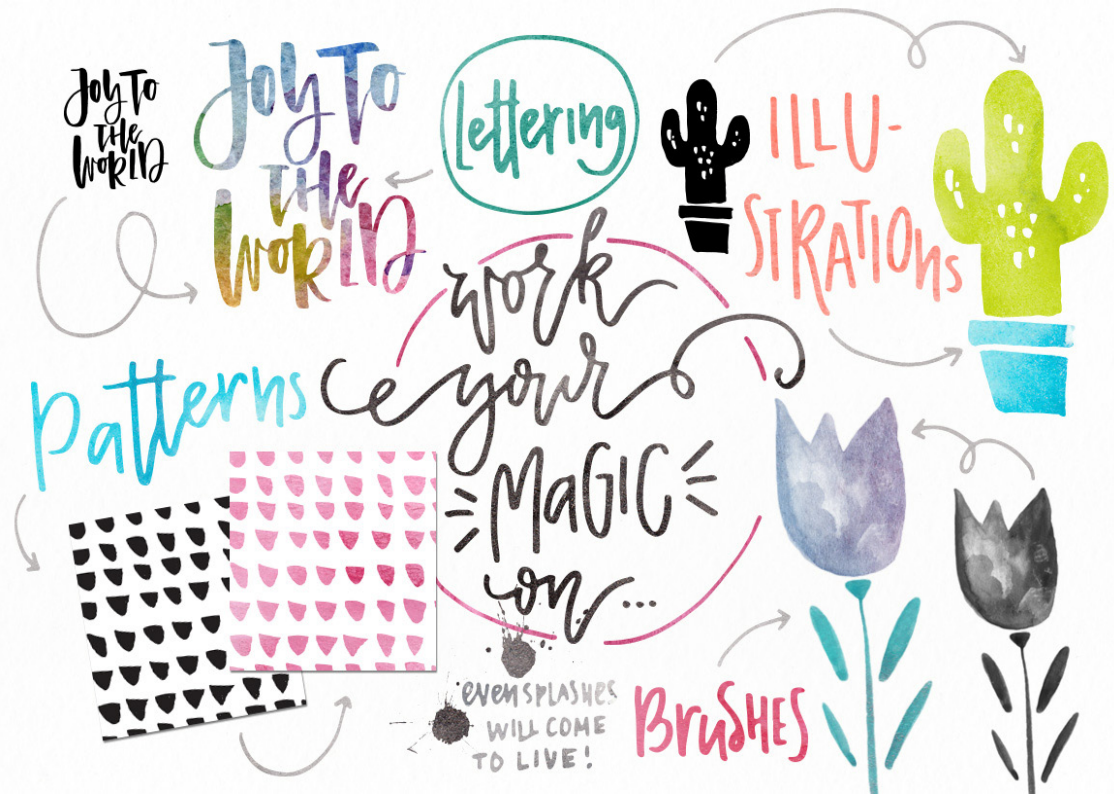 Joy TO
THE
WORLD
Joy TO
THE
WORLD
Lettering
ILLU-
STRATIONs
work
your
MaGIC
on...
Patterns
even SPLASHES
WILL COME
TO LIVE!
BruSHES